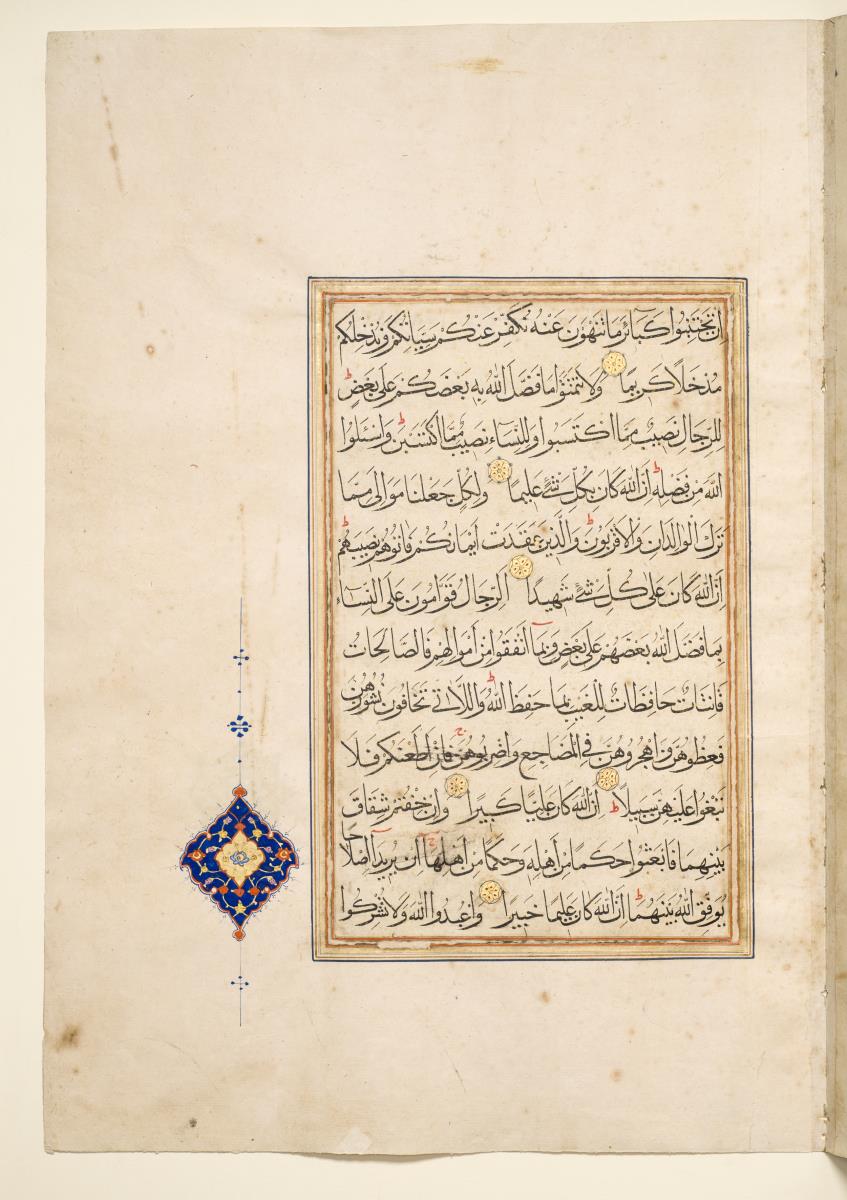 إِن تَجْتَنِبُوا كَبَائِرَ مَا تُنْهَوْنَ عَنْهُ نُكَفِّرْ عَنكُمْ سَيِّئَاتِكُمْ وَنُدْخِلْكُم
مُدْخَلًا كَرِيمًا وَلَا تَتَمَنَّوْا مَا فَضَّلَ اللَّهُ بِهِ بَعْضَكُمْ عَلَى بَعْضٍ ط
لِلرِّجَالِ نَصِيبٌ مِمَّا اكْتَسَبُوا وَلِلنِّسَاءِ نَصِيبٌ مِمَّا اكْتَسَبْنَ ط وَاسْئَلُوا
اللَّهَ مِن فَضْلِهِ ط إِنَّ اللَّهَ كَانَ بِكُلِّ شَيْءٍ عَلِيمًا وَلِكُلٍّ جَعَلْنَا مَوَالِيَ مِمَّا
تَرَكَ الْوَالِدَانِ وَالْأَقْرَبُونَ ط وَالَّذِينَ عَقَدَتْ أَيْمَانُكُمْ فَآتُوهُمْ نَصِيبَهُمْ ط
إِنَّ اللَّهَ كَانَ عَلَى كُلِّ شَيْءٍ شَهِيدًا الرِّجَالُ قَوَّامُونَ عَلَى النِّسَاءِ
بِمَا فَضَّلَ اللَّهُ بَعْضَهُمْ عَلَى بَعْضٍ وَبِمَا أَنْفَقُوا مِنْ أَمْوَالِهِمْ فَالصَّالِحَاتُ
قَانِتَاتٌ حَافِظَاتٌ لِلْغَيْبِ بِمَا حَفِظَ اللَّهُ ط وَاللَّاتِي تَخَافُونَ نُشُوزَهُنَّ
فَعِظُوهُنَّ وَاهْجُرُوهُنَّ فِي الْمَضَاجِعِ وَاضْرِبُوهُنَّ ج فَإِنْ أَطَعْنَكُمْ فَلَا
تَبْغُوا عَلَيْهِنَّ سَبِيلًا ط إِنَّ اللَّهَ كَانَ عَلِيًّا كَبِيرًا وَإِنْ خِفْتُمْ شِقَاقَ
بَيْنِهِمَا فَابْعَثُوا حَكَمًا مِنْ أَهْلِهِ وَحَكَمًا مِنْ أَهْلِهَا ج إِنْ يُرِيدَا إِصْلَاحًا
يُوَفِّقِ اللَّهُ بَيْنَهُمَا ط إِنَّ اللَّهَ كَانَ عَلِيمًا خَبِيرًا وَاعْبُدُوا اللَّهَ وَلَا تُشْرِكُوا